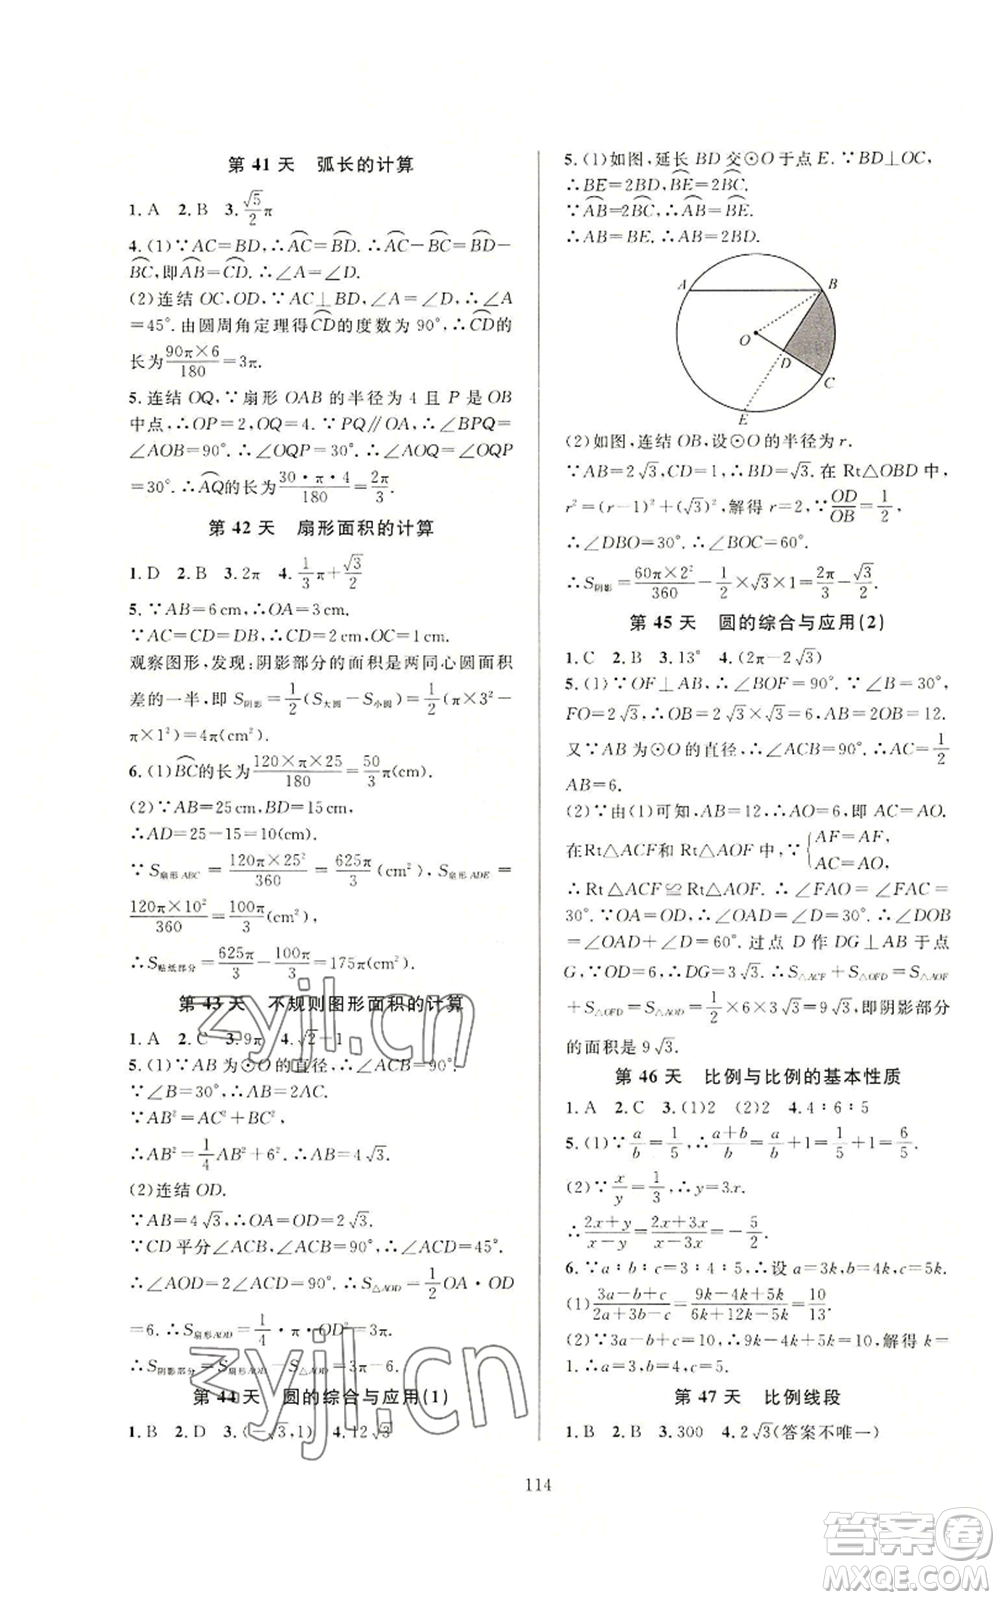 第 41 天　弧长的计算
1. A　2. B　3. √5/2 π
4. (1)∵AC=BD,∴⌒AC=⌒BD. ∴⌒AC−⌒BC=⌒BD−
⌒BC,即⌒AB=⌒CD. ∴∠A=∠D.
(2)连结 OC,OD,∵AC⊥BD,∠A=∠D,∴∠A
=45°. 由圆周角定理得⌒CD的度数为 90°,∴⌒CD的
长为 90π×6/180=3π.
5. 连结 OQ,∵扇形 OAB 的半径为 4 且 P 是 OB
中点,∴OP=2,OQ=4. ∵PQ∥OA,∴∠BPQ
=∠AOB=90°. ∴∠OQP=30°. ∴∠AOQ=∠OQP
=30°. ∴⌒AQ的长为 30·π·4/180=2π/3.
第 42 天　扇形面积的计算
1. D　2. B　3. 2π　4. 1/3 π+√3/2
5. ∵AB=6 cm,∴OA=3 cm.
∵AC=CD=DB,∴CD=2 cm.
观察图形,发现:阴影部分的面积是两同心圆面积
差的一半,即 S阴影=1/2(S大圆−S小圆)=1/2(π×3²−
π×1²)=4π(cm²).
6. (1)⌒BC的长为 120×π×25/180=50/3 π(cm).
(2)∵AB=25 cm,BD=15 cm,
∴AD=25−15=10(cm).
∵S扇形ABC=120π×25²/360=625π/3(cm²),S扇形ADE=
120π×10²/360=100π/3(cm²),
∴S贴纸部分=625π/3−100π/3=175π(cm²).
第 43 天　不规则图形面积的计算
1. A　2. C　3. 9π　4. √2+1
5. (1)∵AB 为⊙O 的直径,∴∠ACB=90°.
∵∠B=30°,∴AC=1/2 AB.
∵AB²=AC²+BC²,
∴AB²=1/4 AB²+6². ∴AB=4√3.
(2)连结 OD.
∵AB=4√3,∴OA=OD=2√3.
∵CD 平分∠ACB,∠ACB=90°,∴∠ACD=45°.
∴∠AOD=2∠ACD=90°. ∴S△AOD=1/2 OA·OD
=6. ∴S扇形AOD=1/4·π·OD²=3π.
∴S阴影部分=S扇形AOD−S△AOD=3π−6.
第 44 天　圆的综合与应用(1)
1. B　2. D　3. (−√3,1)　4. 12√3
5. (1)如图,延长 BD 交⊙O 于点 E. ∵BD⊥OC,
∴BE=2BD,⌒BE=2⌒BC.
∵⌒AB=2⌒BC,∴⌒AB=⌒BE.
∴AB=BE. ∴AB=2BD.
A
B
O
D
C
E
(2)如图,连结 OB,设⊙O 的半径为 r.
∵AB=2√3,CD=1,∴BD=√3. 在 Rt△OBD 中,
r²=(r−1)²+(√3)²,解得 r=2,∵OD/OB=1/2,
∴∠DBO=30°. ∴∠BOC=60°.
∴S阴影=60π×2²/360−1/2×√3×1=2π/3−√3/2.
第 45 天　圆的综合与应用(2)
1. C　2. B　3. 13°　4. (2π−2√3)
5. (1)∵OF⊥AB,∴∠BOF=90°. ∵∠B=30°,
FO=2√3,∴OB=2√3×√3=6,AB=2OB=12.
又∵AB 为⊙O 的直径,∴∠ACB=90°. ∴AC=1/2
AB=6.
(2)∵由(1)可知,AB=12,∴AO=6,即 AC=AO.
在Rt△ACF和Rt△AOF中,∵{AF=AF, AC=AO,
∴Rt△ACF≌Rt△AOF. ∴∠FAO=∠FAC=
30°. ∵OA=OD,∴∠OAD=∠D=30°. ∴∠DOB
=∠OAD+∠D=60°. 过点 D 作 DG⊥AB 于点
G,∵OD=6,∴DG=3√3. ∴S△ACF+S△OFD=S△AOF
+S△OFD=S△AOD=1/2×6×3√3=9√3,即阴影部分
的面积是 9√3.
第 46 天　比例与比例的基本性质
1. A　2. C　3. (1)2　(2)2　4. 4∶6∶5
5. (1)∵a/b=1/5,∴(a+b)/b=a/b+1=1/5+1=6/5.
(2)∵x/y=1/3,∴y=3x.
∴(2x+y)/(x−y)=(2x+3x)/(x−3x)=−5/2.
6. ∵a∶b∶c=3∶4∶5,∴设 a=3k,b=4k,c=5k.
(1)(3a−b+c)/(2a+3b−c)=(9k−4k+5k)/(6k+12k−5k)=10/13.
(2)∵3a−b+c=10,∴9k−4k+5k=10,解得 k=
1. ∴a=3,b=4,c=5.
第 47 天　比例线段
1. B　2. B　3. 300　4. 2√3(答案不唯一)
114
zyjl.cn
zyjl.cn
答案圈
MXQE.COM